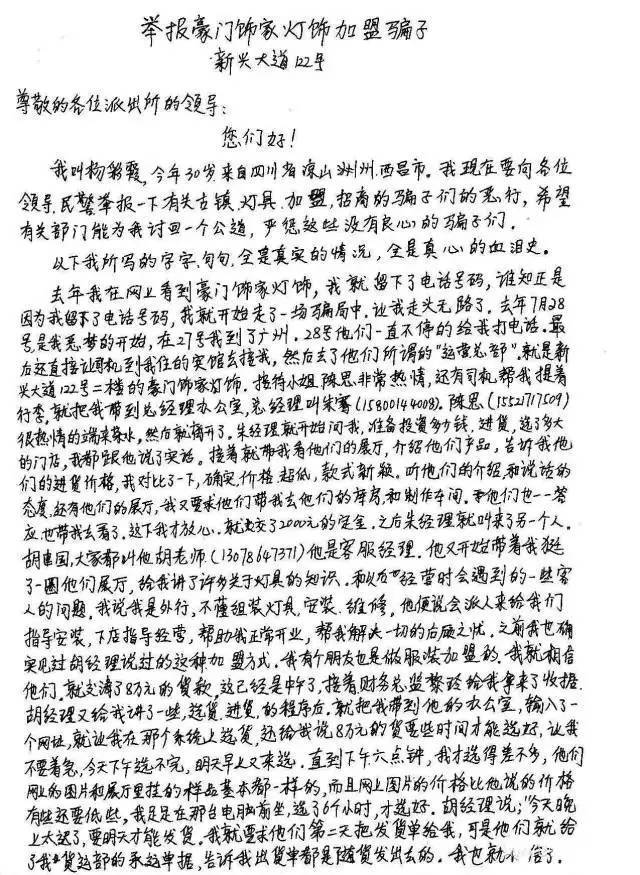 举报豪门饰家灯饰加盟骗子
新兴大道122号
尊敬的各位派出所的领导:
您们好!
我叫杨彩霞,今年30岁来自四川省凉山州州.西昌市。我现在要向各位
领导.民警举报一下有关古镇.灯具.加盟,招商的骗子们的恶行,希望
有关部门能为我讨回一个公道,严惩这些没有良心的骗子们.
以下我所写的字字.句句.全是真实的情况,全是真心的血泪史。
去年我在网上看到豪门饰家灯饰,我就留下了电话号码,谁知正是
因为我留下了电话号码,我就开始走了一场骗局中.让我走头无路了.去年7月28
号是我恶梦的开始,在27号我到了广州.28号他们一直不停的给我打电话.最
后还直接让司机到我住的宾馆去接我,然后去了他们所谓的"运营总部"就是新
兴大道122号二楼的豪门饰家灯饰.接待小姐陈思非常热情,还有司机帮我提着
行李.就把我带到总经理办公室,总经理叫朱骞(15800144008).陈思(15521717509)
很热情的端来茶水,然后就离开了.朱经理就开始问我,准备投资多少钱.进货,选了多大
的门店,我都跟他说了实话。接着就带我看他们的展厅,介绍他们产品,告诉我他
们的进货价格,我对比了一下,确实价格超低,款式新颖.听他们的介绍,和说话的
态度.还有他们的展厅,我又要求他们带我去他们的库房和制作车间.他们也一一答
应也带我去看了.这下我才放心.就交了2000元的定金.之后朱经理就叫来了另一个人.
胡建国,大家都叫他胡老师.(13078647371)他是客服经理.他又开始带着我逛
了一圈他们展厅,给我讲了许多关于灯具的知识.和以后经营时会遇到的一些客
人的问题.我说我是外行,不懂组装灯具.安装.维修.他便说会派人来给我们
指导安装,下店指导经营,帮助我正常开业,帮我解决一切的后顾之忧.之前我也确
实见过胡经理说过的这种加盟方式.我有个朋友也是做服装加盟的.我就相信
他们.就交清了8万元的货款.这已经是中午了,接着财务总监黎玲给我拿来了收据.
胡经理又给我讲了一些,选货.进货,的程序后.就把我带到他的办公室,输入了一
个网址,就让我在那个系统上选货,还给我说8万的货要些时间才能选好,让我
不要着急,今天下午选不完,明天早上又来选.直到下午六点钟,我才选得差不多,他们
网上的图片和展厅里挂的样品基本都一样的,而且网上图片的价格比他说的价格
有些还要低些,我足足在那台电脑前坐,选了6个小时,才选好.胡经理说;"今天晚
上太迟了,要明天才能发货.我就要求他们第二天把发货单给我,可是他们就给
了我货运部的承运单据,告诉我出货单都是随货发出去的.我也就相信了.